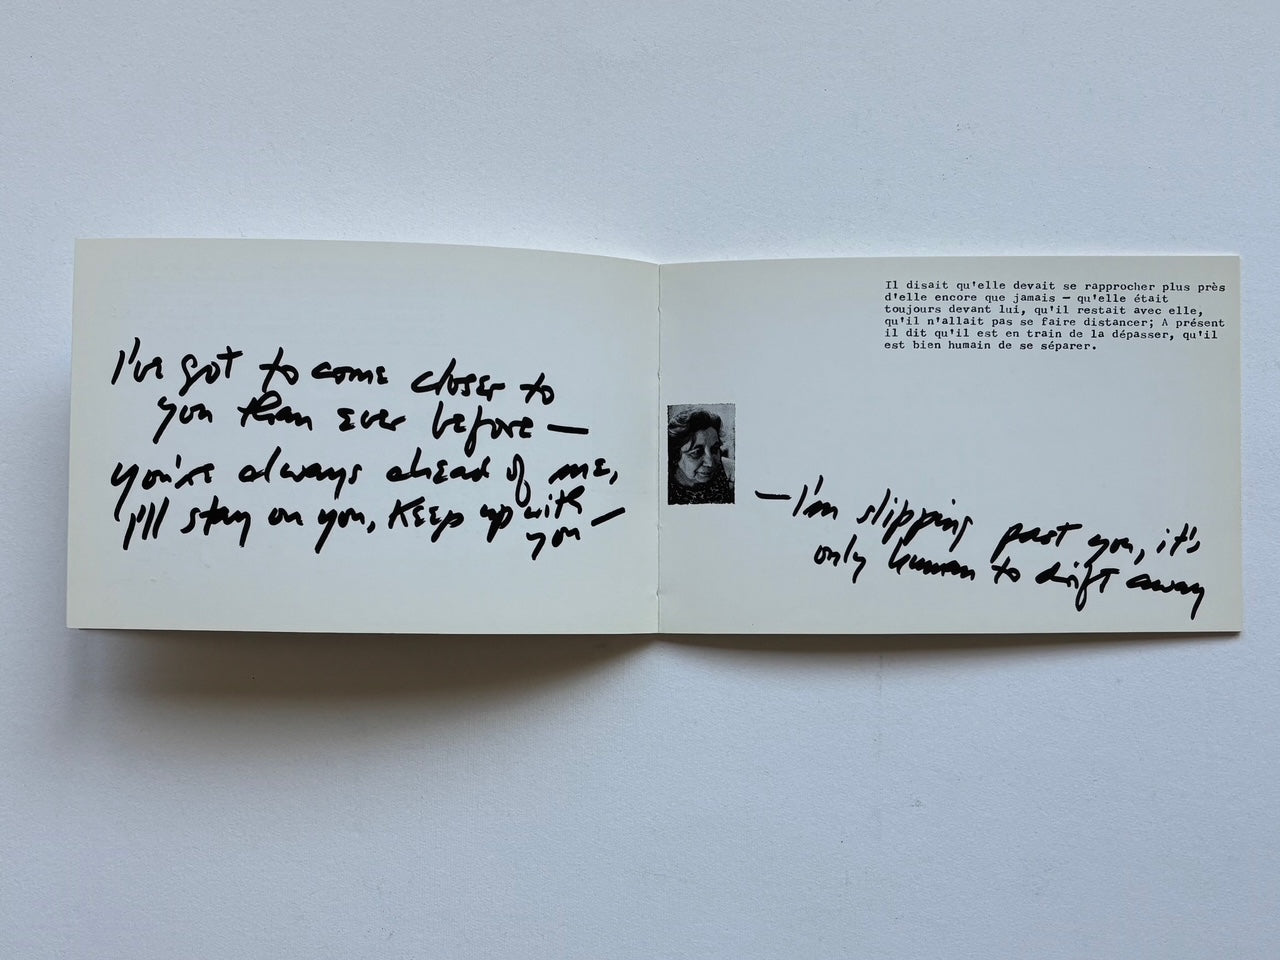 I've got to come closer to
you than ever before —
you're always ahead of me,
I'll stay on you, keep up with
you —
Il disait qu'elle devait se rapprocher plus près
d'elle encore que jamais — qu'elle était
toujours devant lui, qu'il restait avec elle,
qu'il n'allait pas se faire distancer; A présent
il dit qu'il est en train de la dépasser, qu'il
est bien humain de se séparer.
— I'm slipping past you, it's
only human to drift away